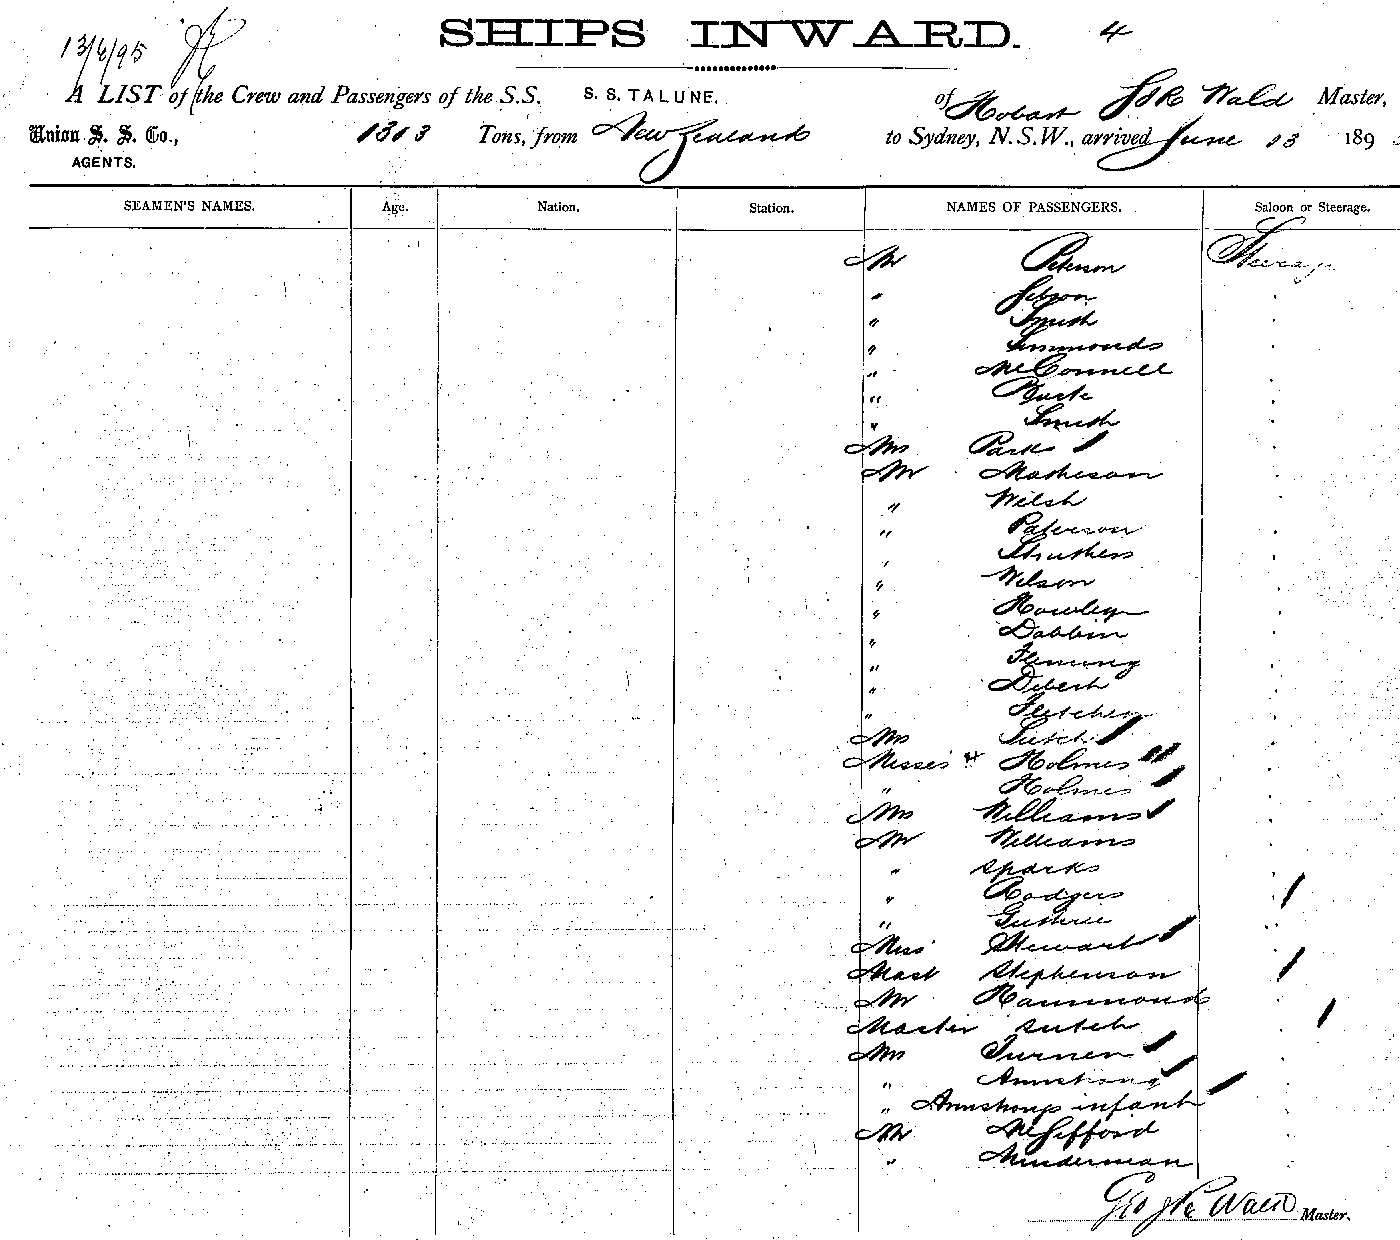 SHIPS INWARD. 4
13/6/95
A LIST of the Crew and Passengers of the S.S. S. S. TALUNE. of Hobart Wald Master,
Union S. S. Co., 1303 Tons, from New Zealand to Sydney, N.S.W., arrived June 13 189
AGENTS.
SEAMEN'S NAMES. Age. Nation. Station. NAMES OF PASSENGERS. Saloon or Steerage.
Mr Peterson Steerage
"
" Smith
" Simmonds
" McConnell
"
" Smith
Mrs Parks
Mr Matheson
" Welsh
" Paterson
Struthers
" Wilson
" Rowley
" Dobbin
" Fleming
"
" Fletcher
Mrs Sutch
Misses 4 Holmes
" Holmes
Mrs Williams
Mr Williams
" Sparks
" Rodgers
" Guthrie
Miss Stewart
Mast Stephenson
Mr Hammond
Master Sutch
Mrs Turner
" Armstrong
" Armstrongs infant
Mr McGifford
" Minderman
Wald Master.